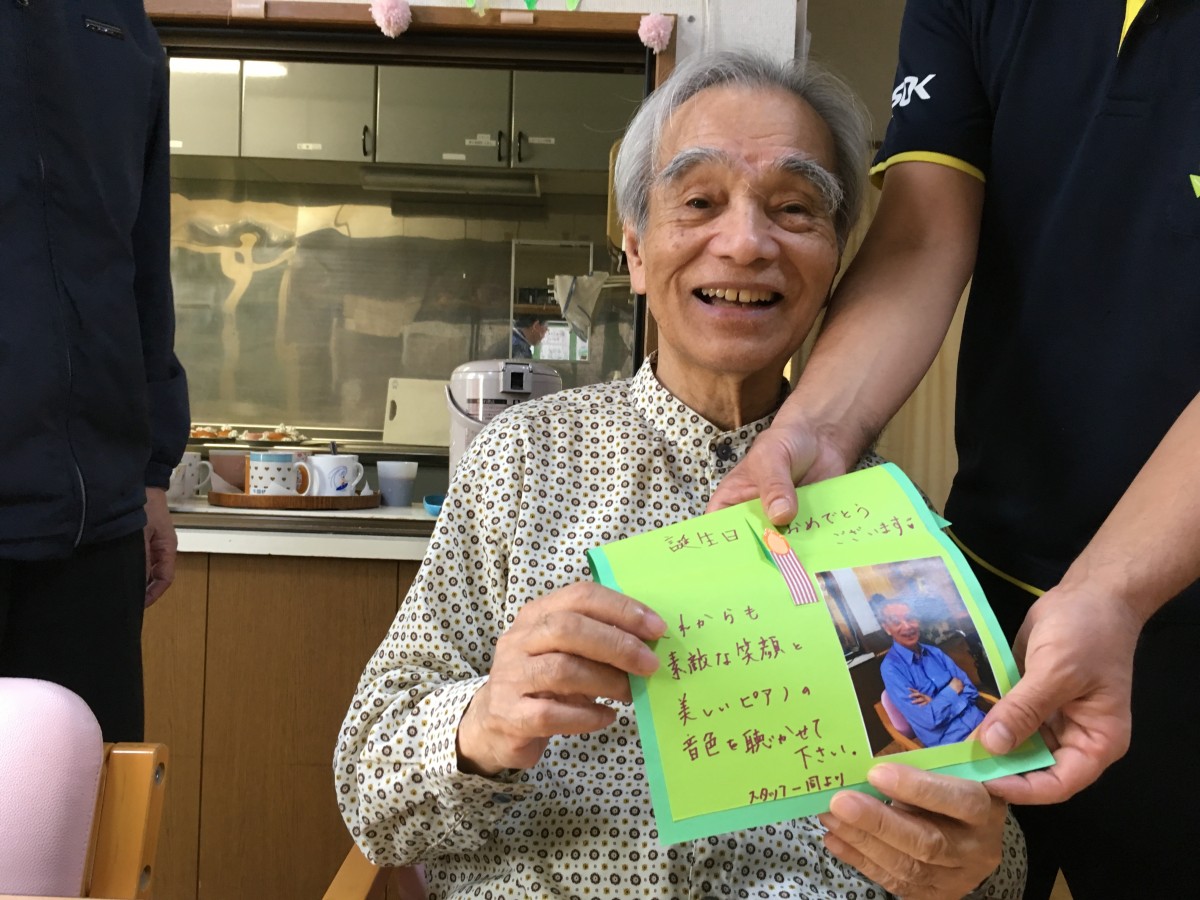 SDK
誕生日 おめでとう
ございます
これからも
素敵な笑顔と
美しいピアノの
音色を聴かせて
下さい。
スタッフ一同より